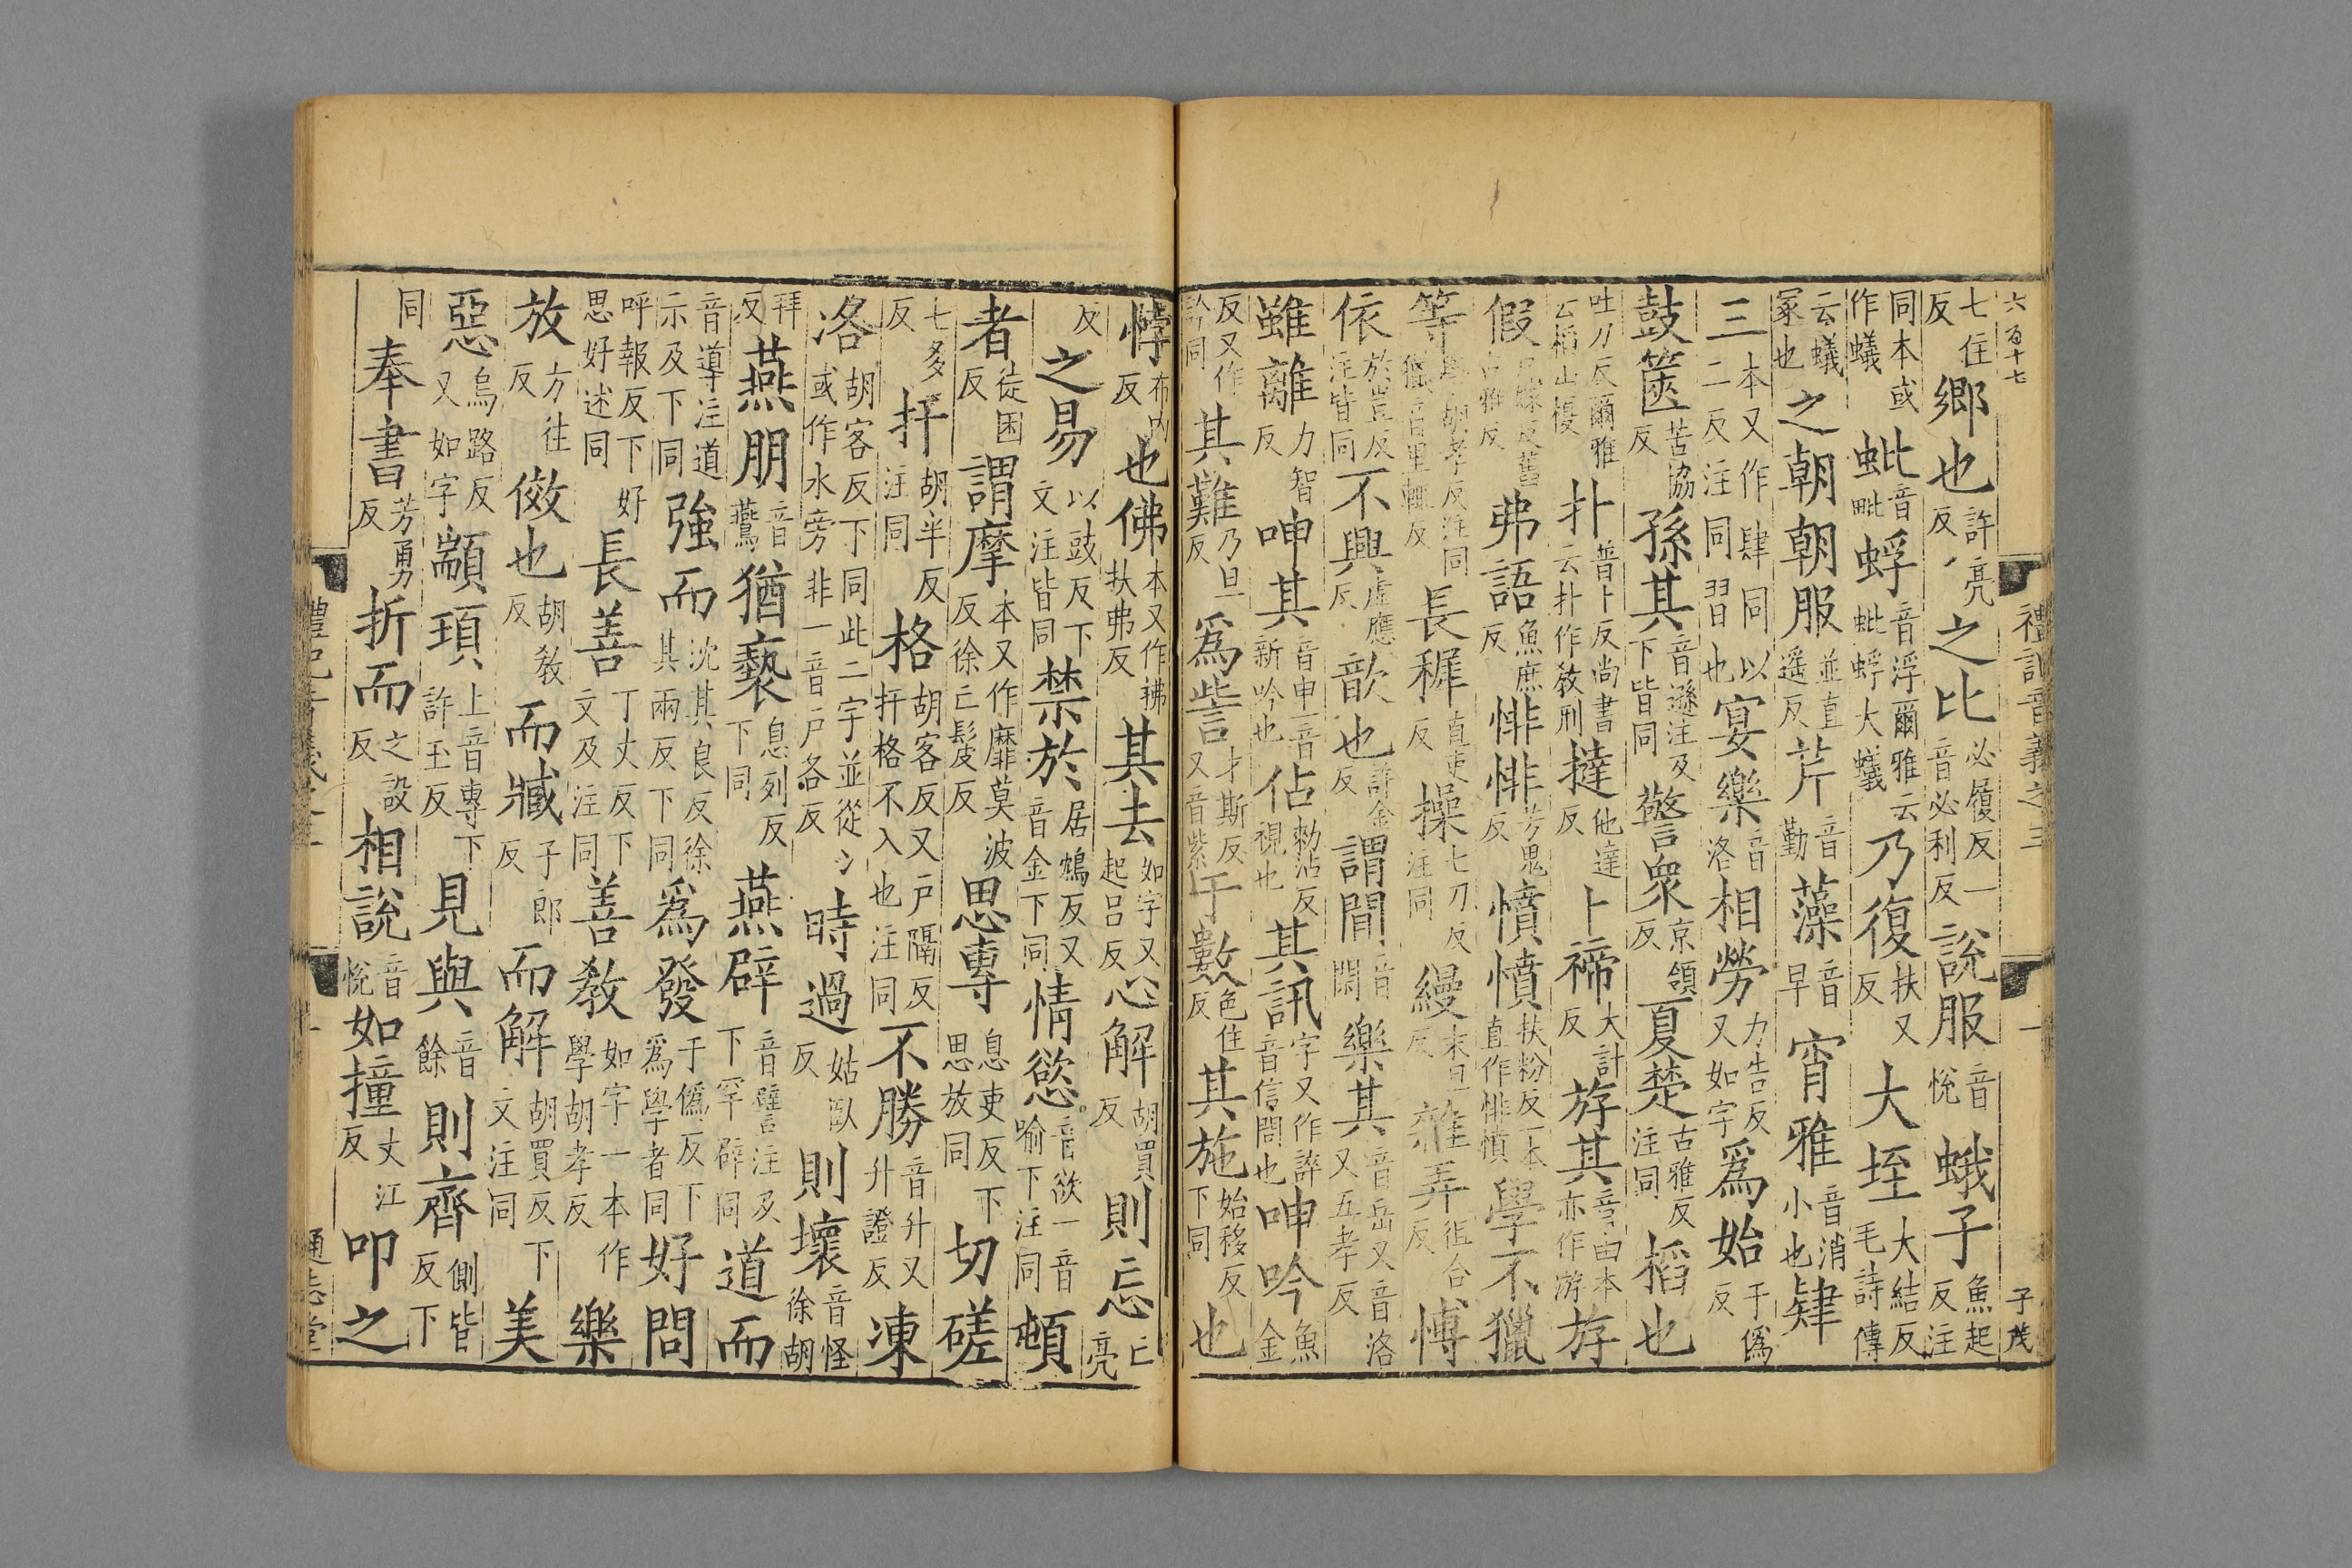 六百十七 禮記音義之三 一 子茂
七住反鄉也許亮反之比必履反一音必利反說服音悅蛾子魚起反注
同本或作蟻蚍音毗蜉音浮爾雅云蚍蜉大蟻乃復扶又反大垤大結反毛詩傳
云蟻冢也之朝朝服並直遥反芹音勤藻音早宵雅音消小也肄
三本又作肆同以二反注同習也宴樂音洛相勞力告反又如字爲始于僞反
鼓篋苦協反孫其音遜注及下皆同警衆京領反夏楚古雅反注同槄也
吐刀反爾雅云槄山榎扑普卜反尚書云扑作教刑撻他達反卜禘大計反斿其音由本亦作游斿
假嫁反舊古雅反弗語魚庶反悱悱芳鬼反憤憤扶粉反一本直作悱憤學不獵
等學胡孝反注同獵音里輒反長穉直吏反操七刀反注同縵末旦反雜弄徂合反愽
依於豈反注皆同不興虛應反歆也許金反謂閒音閑樂其音岳又音洛又五孝反
雖離力智反呻其音申一音新吟也佔勑沾反視也其訊字又作誶音信問也呻吟魚金
反又作訡同其難乃旦反爲訾才斯反又音紫于數色住反其施始移反下同也
悖布内反也佛本又作拂扶弗反其去如字又起呂反心解胡買反則忘亡亮
反之易以豉反下文注皆同禁於居鴆反又音金下同情慾音欲一音喻下注同頓
者徒困反謂摩本又作靡莫波反徐亡髲反思專息吏反下思放同切磋
七多反扞胡半反注同格胡客反又戶隔反扞格不入也注同不勝音升又升證反凍
洛胡客反下同此二字並從冫或作水旁非一音戶各反時過姑臥反則壞音怪徐胡
拜反燕朋音鷰猶褻息列反下同燕辟音譬注及下罕辟同道而
音導注道示及下同強而沈其良反徐其兩反下同爲發于僞反下爲學者同好問
呼報反下好思好述同長善丁丈反下文及注同善教如字一本作學胡孝反樂
放方往反傚也胡教反而臧子郎反而解胡買反下文注同美
惡烏路反又如字顓頊上音專下許玉反見與音餘則齊側皆反下
同奉書芳勇反折而之設反相說音悅如撞丈江反叩之
通志堂